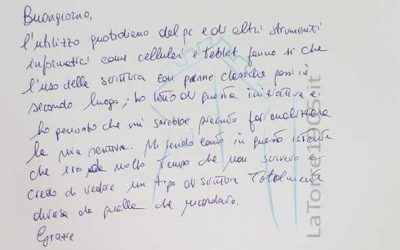 Buongiorno,
l'utilizzo quotidiano del pc e di altri strumenti
informatici come cellulari e tablet fanno si che
l'uso della scrittura con penne classiche passi in
secondo luogo; ho letto di questa iniziativa e
ho pensato che mi sarebbe piaciuto far analizzare
la mia scrittura. Mi rendo conto in questo istante
che era molto tempo che non scrivevo e
credo di vedere un tipo di scrittura totalmente
diversa da quella che ricordavo.
Grazie
LaTorre1905.it